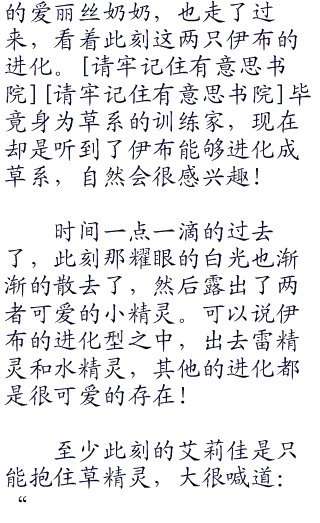 的爱丽丝奶奶，也走了过
来，看着此刻这两只伊布的
进化。[请牢记住有意思书
院][请牢记住有意思书院]毕
竟身为草系的训练家，现在
却是听到了伊布能够进化成
草系，自然会很感兴趣！
时间一点一滴的过去
了，此刻那耀眼的白光也渐
渐的散去了，然后露出了两
者可爱的小精灵。可以说伊
布的进化型之中，出去雷精
灵和水精灵，其他的进化都
是很可爱的存在！
至少此刻的艾莉佳是只
能抱住草精灵，大很喊道：
“